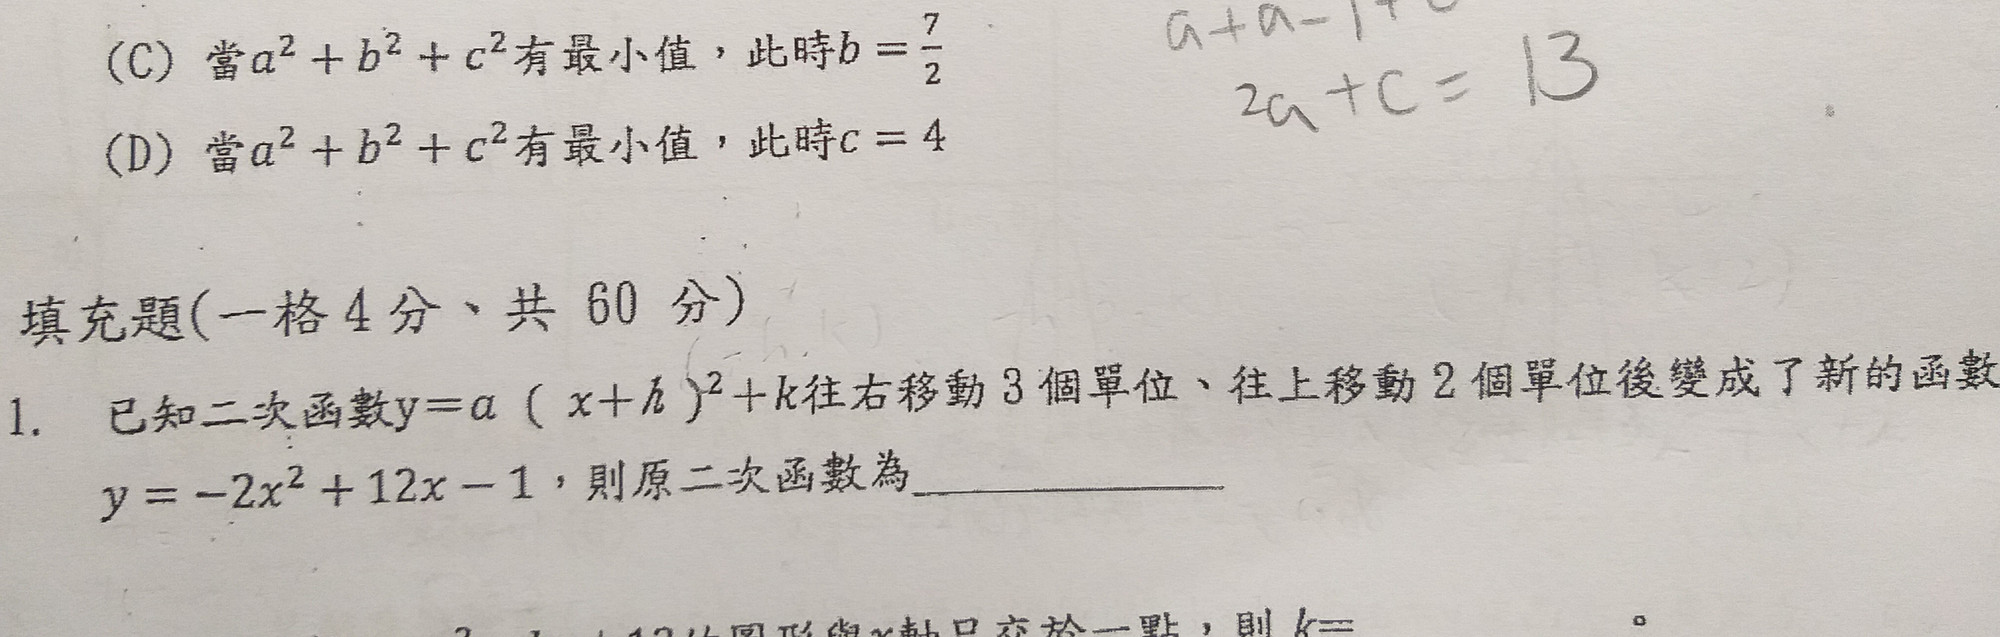 (C) 當a² + b² + c²有最小值，此時b = 7/2
a+a-1+
2a+c= 13
(D) 當a² + b² + c²有最小值，此時c = 4
填充題(一格 4 分、共 60 分)
1. 已知二次函數y=a ( x+h )²+k往右移動 3 個單位、往上移動 2 個單位後變成了新的函數
y = −2x² + 12x − 1，則原二次函數為
軸只交於一點，則 k= 。